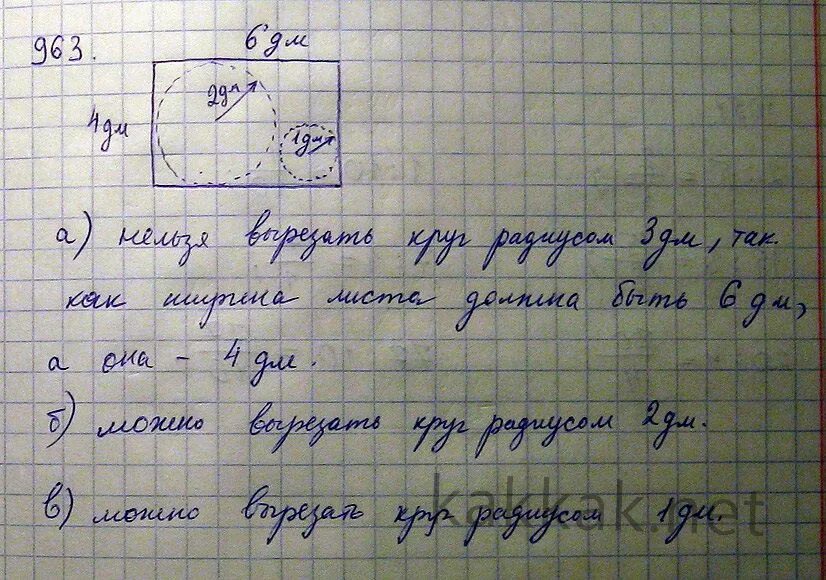 963.
6 дм
2дм
4дм
1дм
а) нельзя вырезать круг радиусом 3дм, так
как ширина листа должна быть 6 дм,
а она - 4 дм.
б) можно вырезать круг радиусом 2дм.
в) можно вырезать круг радиусом 1дм.
kakkak.net